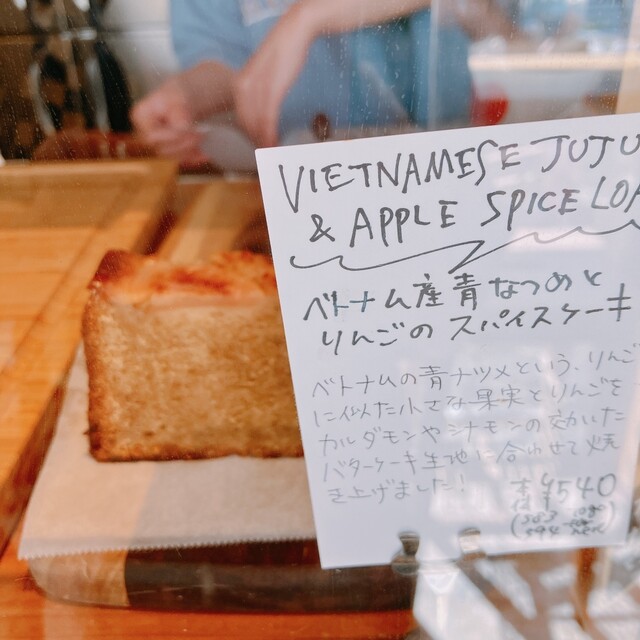 VIETNAMESE JUJU
& APPLE SPICE LOA
ベトナム産青なつめと
りんごのスパイスケーキ
ベトナムの青ナツメという、りんご
に似た小さな果実とりんごを
カルダモンやシナモンの効いた
バターケーキ生地に合わせて焼
き上げました!
¥540